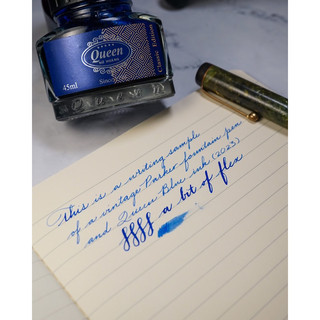 Queen
45ml
Classic Edition
Since
This is a writing sample
of a vintage Parker fountain pen
and Queen Blue ink (2023)
ffff a bit of flex